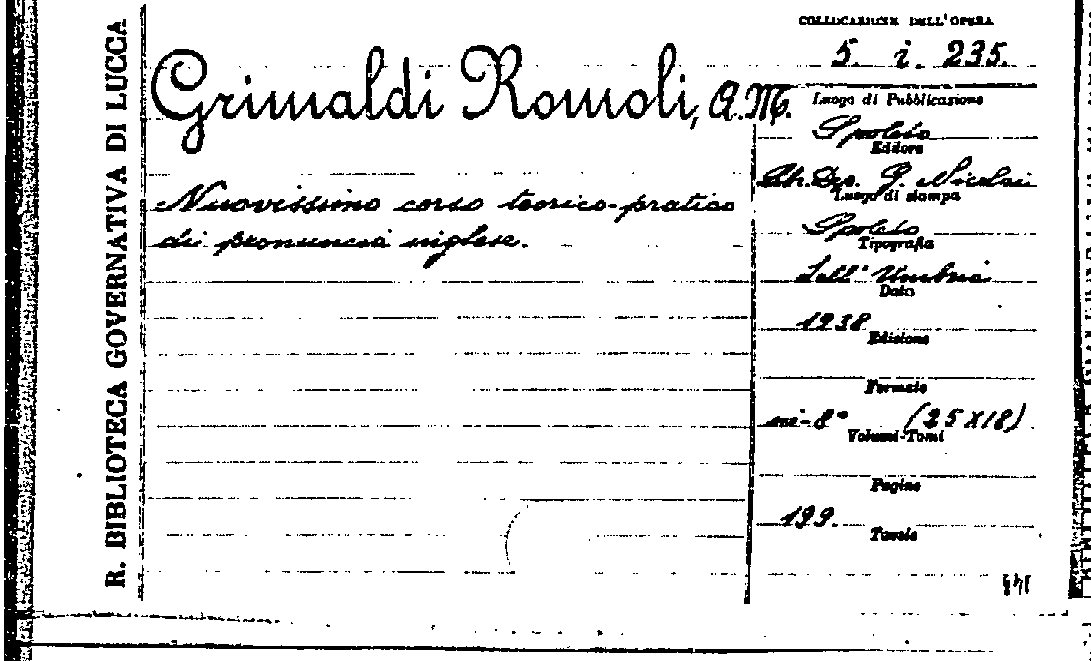 R. BIBLIOTECA GOVERNATIVA DI LUCCA
Grimaldi Romoli, A.M.
Nuovissimo corso teorico-pratico
di pronuncia inglese.
COLLOCAZIONE DELL'OPERA
5. i. 235.
Luogo di Pubblicazione
Spoleto
Editore
G. Nicolai
Luogo di stampa
Spoleto
Tipografia
Dell' Umbria
Data
1938
Edizione
Formato
in-8° (25X18)
Volumi-Tomi
Pagine
199.
Tavole